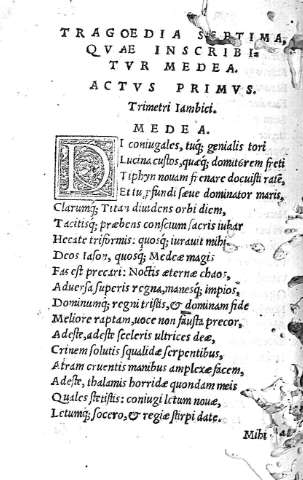 TRAGOEDIA SEPTIMA,
QVAE INSCRIBI-
TVR MEDEA.
ACTVS PRIMVS.
Trimetri Iambici.
MEDEA.
DI coniugales, tuq; genialis tori
Lucina custos, quæq; domitorem freti
Tiphyn nouam frenare docuisti ratẽ,
Et tu ꝓfundi sæue dominator maris,
Clarumq; Titan diuidens orbi diem,
Tacitisq; præbens conscium sacris iubar
Hecate triformis: quosq; iurauit mihi
Deos Iason, quosq; Medeæ magis
Fas est precari: Noctis æternæ chaos,
Aduersa superis regna, manesq; impios,
Dominumq; regni tristis, & dominam fide
Meliore raptam, uoce non fausta precor,
Adeste, adeste sceleris ultrices deæ,
Crinem solutis squalidæ serpentibus,
Atram cruentis manibus amplexæ facem,
Adeste, thalamis horridæ quondam meis
Quales stetistis: coniugi letum nouæ,
Letumq; socero, & regiæ stirpi date.
Mihi